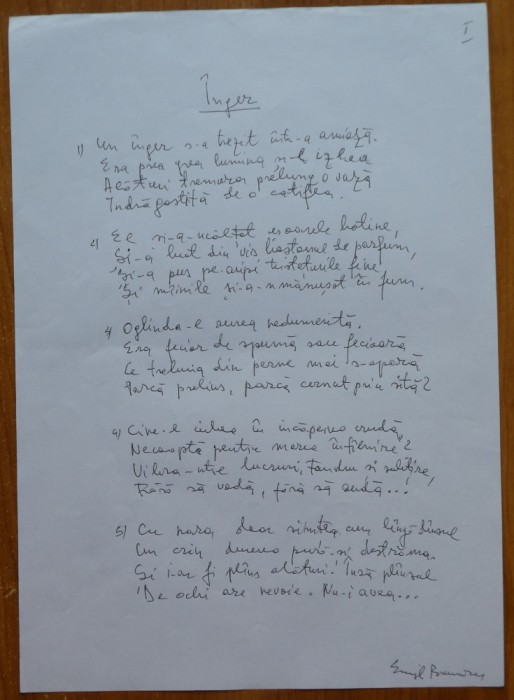 I
Înger
1) Un înger s-a trezit într-o amiază.
Era prea grea lumina și-l izbea
Alături tremura prelung o vază
Îndrăgostită de o catifea.
2) El și-a-ncălțat botine,
Și-a luat din vis bastonul de parfum,
Și-a pus pe aripi tristețurile fine
Și mîinile și-a-nmănușat în fum.
3) Oglinda-l avea nedumerită.
Era fecior de spumă sau fecioară
Ce trebuia din perne mai s-apară
Parcă prelins, parcă cernut prin sită?
4) Cine-l iubea în încăperea crudă,
Necoaptă pentru marea înfiorire?
Vibra-ntre lucruri, tandru și subțire,
Fără să vadă, fără să audă...
5) Cu nara doar simțea cum lîngă dînsul
Un crin durerea pură-și destrăma.
Și i-ar fi plîns alături! Însă plînsul
De ochi are nevoie. Nu-i avea...
Emil